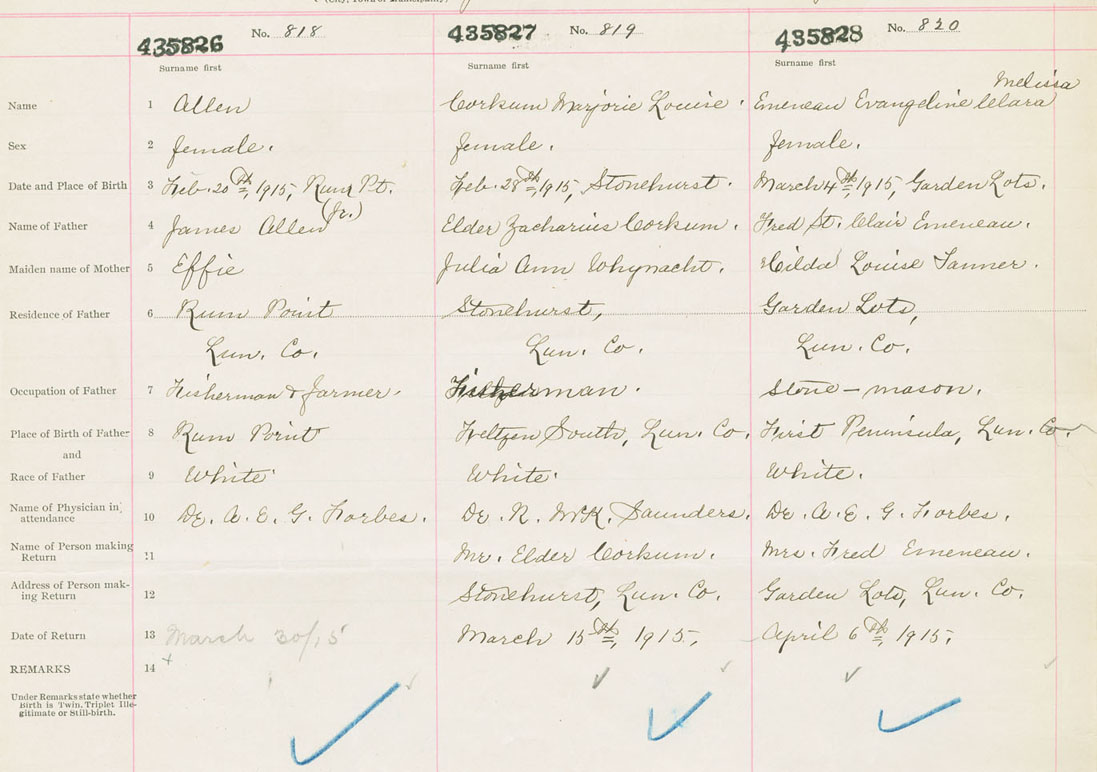 (City, Town or Municipality)
435826 No. 818 435827 No. 819 435828 No. 820
Surname first Surname first Surname first
Melissa
Name 1 Allen Corkum Marjorie Louise. Emeneau Evangeline Clara
Sex 2 female. female. female.
Date and Place of Birth 3 Feb. 20th, 1915, Rum Pt. Feb. 28th, 1915, Stonehurst. March 4th, 1915, Garden Lots.
Name of Father 4 James Allen (Jr.) Elder Zacharius Corkum. Fred St. Clair Emeneau.
Maiden name of Mother 5 Effie Julia Ann Whynacht. Hilda Louise Tanner.
Residence of Father 6 Rum Point Stonehurst, Garden Lots,
Lun. Co. Lun. Co. Lun. Co.
Occupation of Father 7 Fisherman & farmer. Fisherman. Stone-mason.
Place of Birth of Father 8 Rum Point Feltzen South, Lun. Co. First Peninsula, Lun. Co.
and
Race of Father 9 White White. White.
Name of Physician in attendance 10 Dr. A. E. G. Forbes. Dr. R. Saunders. Dr. A. E. G. Forbes.
Name of Person making Return 11 Mr. Elder Corkum. Mrs. Fred Emeneau.
Address of Person mak-
ing Return 12 Stonehurst, Lun. Co. Garden Lots, Lun. Co.
Date of Return 13 March 30/15 March 15th, 1915. April 6th, 1915.
REMARKS 14
Under Remarks state whether
Birth is Twin, Triplet Ille-
gitimate or Still-birth.